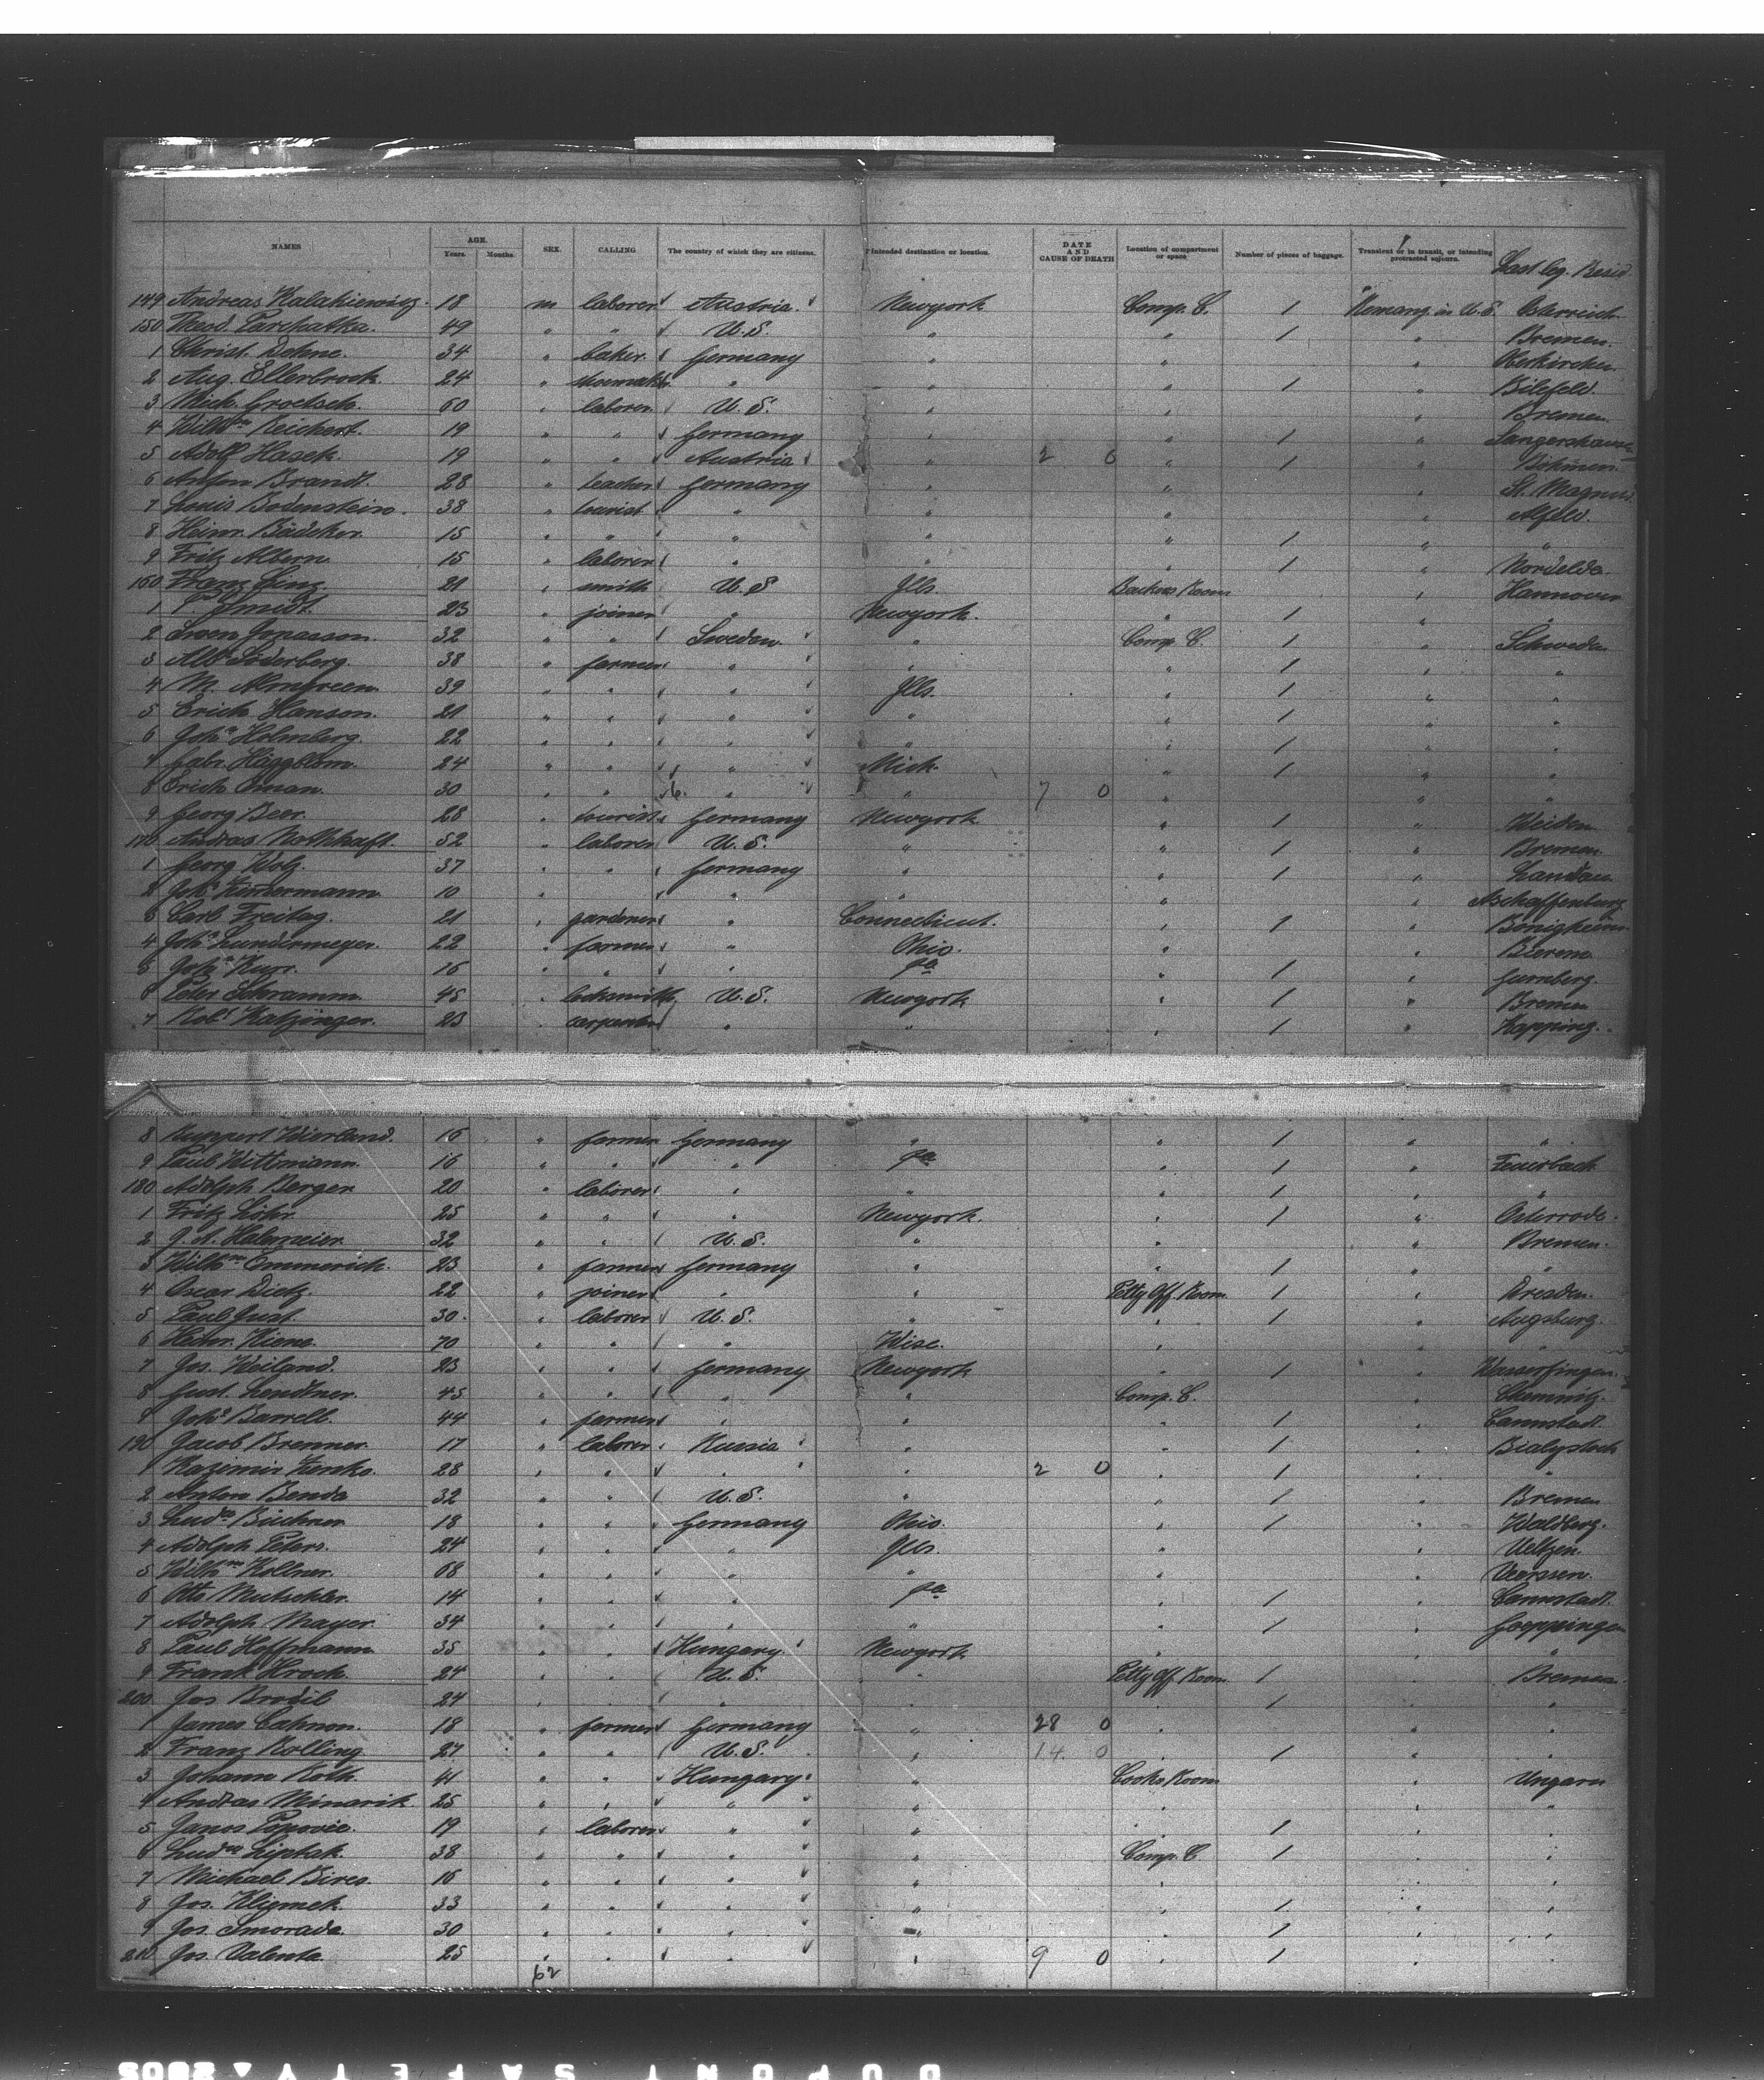 NAMES AGE. Years. Months. SEX. CALLING The country of which they are citizens. Intended destination or location. DATE AND CAUSE OF DEATH Location of compartment or space Number of pieces of baggage. Transient or in transit, or intending protracted sojourn. Last leg. Resid.
149 Andreas Kalakiewicz. 18 m laborer Austria. Newyork Comp. C. 1 Remang. in U.S. Östarreich
150 Theod. Parchatka. 49 " " U.S. " " 1 " Bremen.
1 Christ. Dehne. 34 " baker Germany " " "
2 Aug. Ellerbrock. 24 " shoemaker " " " 1 " Bilefeld.
3 Mich. Groetsch. 60 " laborer U.S. " " " Bremen.
4 Wilhm Reichert. 19 " " Germany " " 1 " Sangershausen
5 Adolf Hasek. 19 " " Austria " 2 0 " 1 " Böhmen.
6 Anton Brandt. 28 " teacher Germany " " " St. Magnus
7 Louis Bodenstein. 38 " tourist " " " " Alfeld.
8 Heinr. Bädeker. 15 " " " " " 1 " "
9 Fritz Albern. 15 " laborer " " " 1 " Nordelda.
160 Franz Lenz 21 " smith U.S Ills. Backers Room " Hannover
1 P. Smidt. 23 " joiner " Newyork. " 1 " "
2 Swen Jonasson. 32 " " Sweden " Comp. C. 1 " Schweden
3 Alb. Söderberg. 38 " farmer " " " 1 " "
4 M. Almgreen 39 " " " Ills. " 1 " "
5 Erich Hanson. 21 " " " " " 1 " "
6 Johs Holmberg. 22 " " " " " 1 " "
7 Gabr. Häggblom. 24 " " " Mich. " 1 " "
8 Erich Öman. 30 " " " " 7 0 " " "
9 Georg Beer. 28 " tourist Germany Newyork " 1 " Weiden
170 Andreas Nothhaft. 52 " laborer U.S. " " 1 " Bremen.
1 Georg Wolz. 37 " " Germany " " 1 " Landau
2 Joh. Zimermann 10 " " " " " Aschaffenburg
3 Carl Freitag. 21 " gardener " Connecticut. " 1 " Bönigheim
4 Johs Lundermeyer. 22 " farmer " Ohio. " " Bierene
5 Johs Kurr. 16 " " " Pa " 1 " Gurnberg.
6 Peter Schramm. 45 " locksmith U.S. Newyork " 1 " Bremen
7 Robt Katzinger. 23 " carpenter " " " 1 " Kopping.
8 Ruppert Wierland. 16 " farmer Germany " " 1 " "
9 Paul Wittmann. 16 " " " Pa " 1 " Feuerbach
180 Adolph Berger 20 " laborer " " " 1 " "
1 Fritz Löhr. 25 " " " Newyork. " 1 " Osterrode.
2 J. A. Halemeier. 32 " " U.S. " " " Bremen.
3 Wilhm Emmerich. 23 " farmer Germany " " 1 " "
4 Oscar Dietz. 22 " joiner " " Petty Off. Room 1 " Dresden.
5 Paul Just. 30. " laborer U.S. " " 1 " Augsburg.
6 Heinr. Kiene. 70 " " " Wisc. " " "
7 Jos. Weiland. 23 " " Germany Newyork " 1 " Wasserfingen.
8 Gust. Lendtner. 45 " " " " Comp. C. " Chemnitz.
9 Johs Barrell. 44 " farmer " " " 1 " Cannstadt.
190 Jacob Brenner. 17 " laborer Russia " " 1 " Bialystock
1 Kazimir Zienko. 28 " " " " 2 0 " 1 " "
2 Anton Benda 32 " " U.S. " " 1 " Bremen
3 Ludw Büchner 18 " " Germany Ohio. " 1 " Waldberg.
4 Adolph Peters. 24 " " " Ills. " " Ueltzen.
5 Wilhm Kollner. 68 " " " " " " Veerssen.
6 Otto Mutschler. 14 " " " Pa " 1 " Cannstadt.
7 Adolph Mayer. 34 " " " " " 1 " Goeppingen
8 Paul Hoffmann 35 " " Hungary. Newyork " " "
9 Frank Hroch. 24 " " U.S. " Petty Off. Room 1 " Bremen.
200. Jos Brodil 24 " " " " " 1 " "
1 James Cahnon. 18 " farmer Germany " 28 0 " " "
2 Franz Kolling 27 " " U.S. " 14. 0 " 1 " "
3 Johann Roth. 41 " " Hungary. " Cooks Room " Ungarn
4 Andras Minarik. 25 " " " " " " "
5 Janos Popovic. 19 " laborer " " " 1 " "
6 Ludw Liptak. 38 " " " " Comp. C 1 " "
7 Michael Bires. 16 " " " " " " "
8 Jos. Klymek. 33 " " " " " 1 " "
9 Jos. Smorada. 30 " " " " " 1 " "
210 Jos. Valenta. 25 " " " " 9 0 " 1 " "
62
DUPONT SAFETY